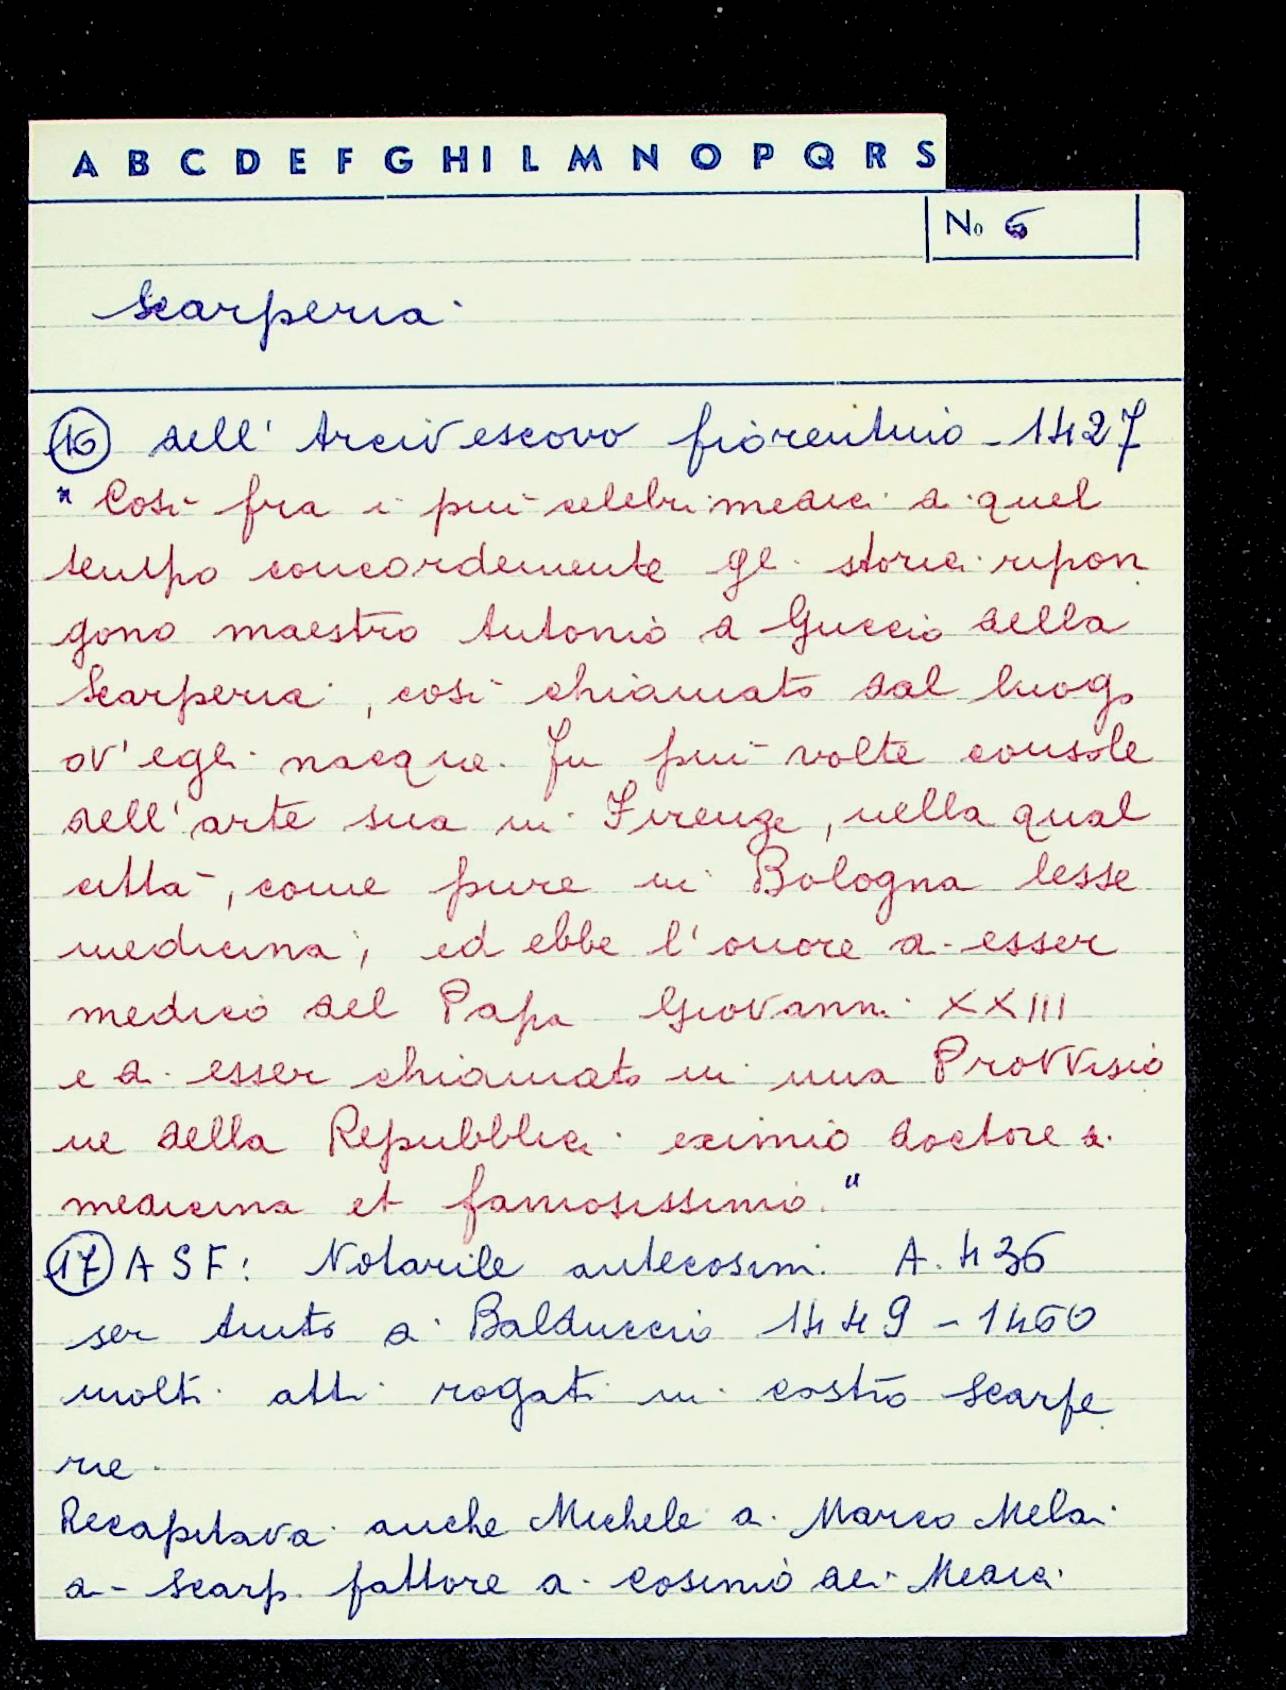 A B C D E F G H I L M N O P Q R S
No 6
Scarperia
16 dell' Arcivescovo fiorentino - 1427
"Così fra i più celebri medici di quel
tempo concordemente gli storici ripon
gono maestro Antonio di Guccio della
Scarperia, così chiamato dal luogo
ov'egli nacque. Fu più volte console
dell'arte sua in Firenze, nella qual
città, come pure in Bologna lesse
medicina, ed ebbe l'onore di esser
medico del Papa Giovanni XXIII
e di esser chiamato in una Provvisio
ne della Repubblica eximio doctore di
medicina et famosissimo."
17 ASF: Notarile antecosim. A. 436
ser Antº di Balduccio 1449 - 1460
molti atti rogati in castro Scarpe
rie.
Recapitava anche Michele di Marco Melai
di Scarp. fattore di Cosimo dei Medici